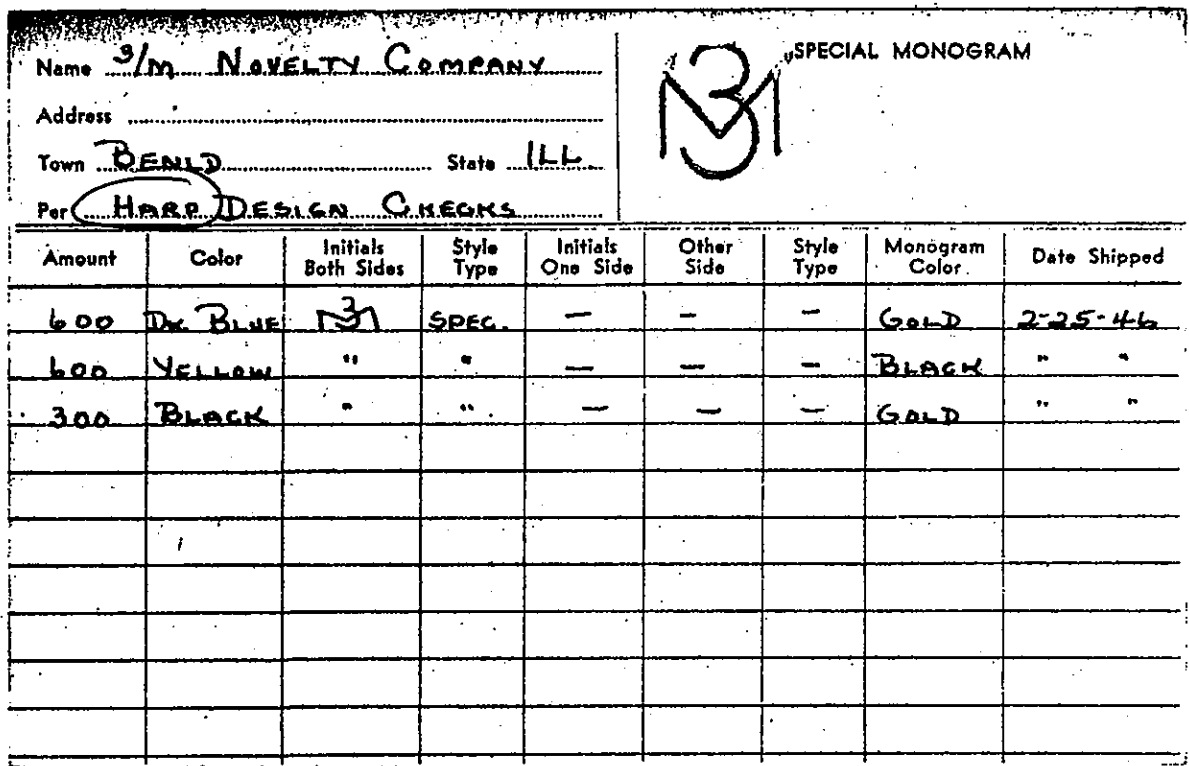 Name 3/M NOVELTY COMPANY
SPECIAL MONOGRAM
3M
Address
Town BENLD State ILL.
Per HARP DESIGN CHECKS
Amount Color Initials Both Sides Style Type Initials One Side Other Side Style Type Monogram Color Date Shipped
600 DK. BLUE 3M SPEC. — — — GOLD 2-25-46
600 YELLOW " " — — — BLACK " "
300 BLACK " " — — — GOLD " "